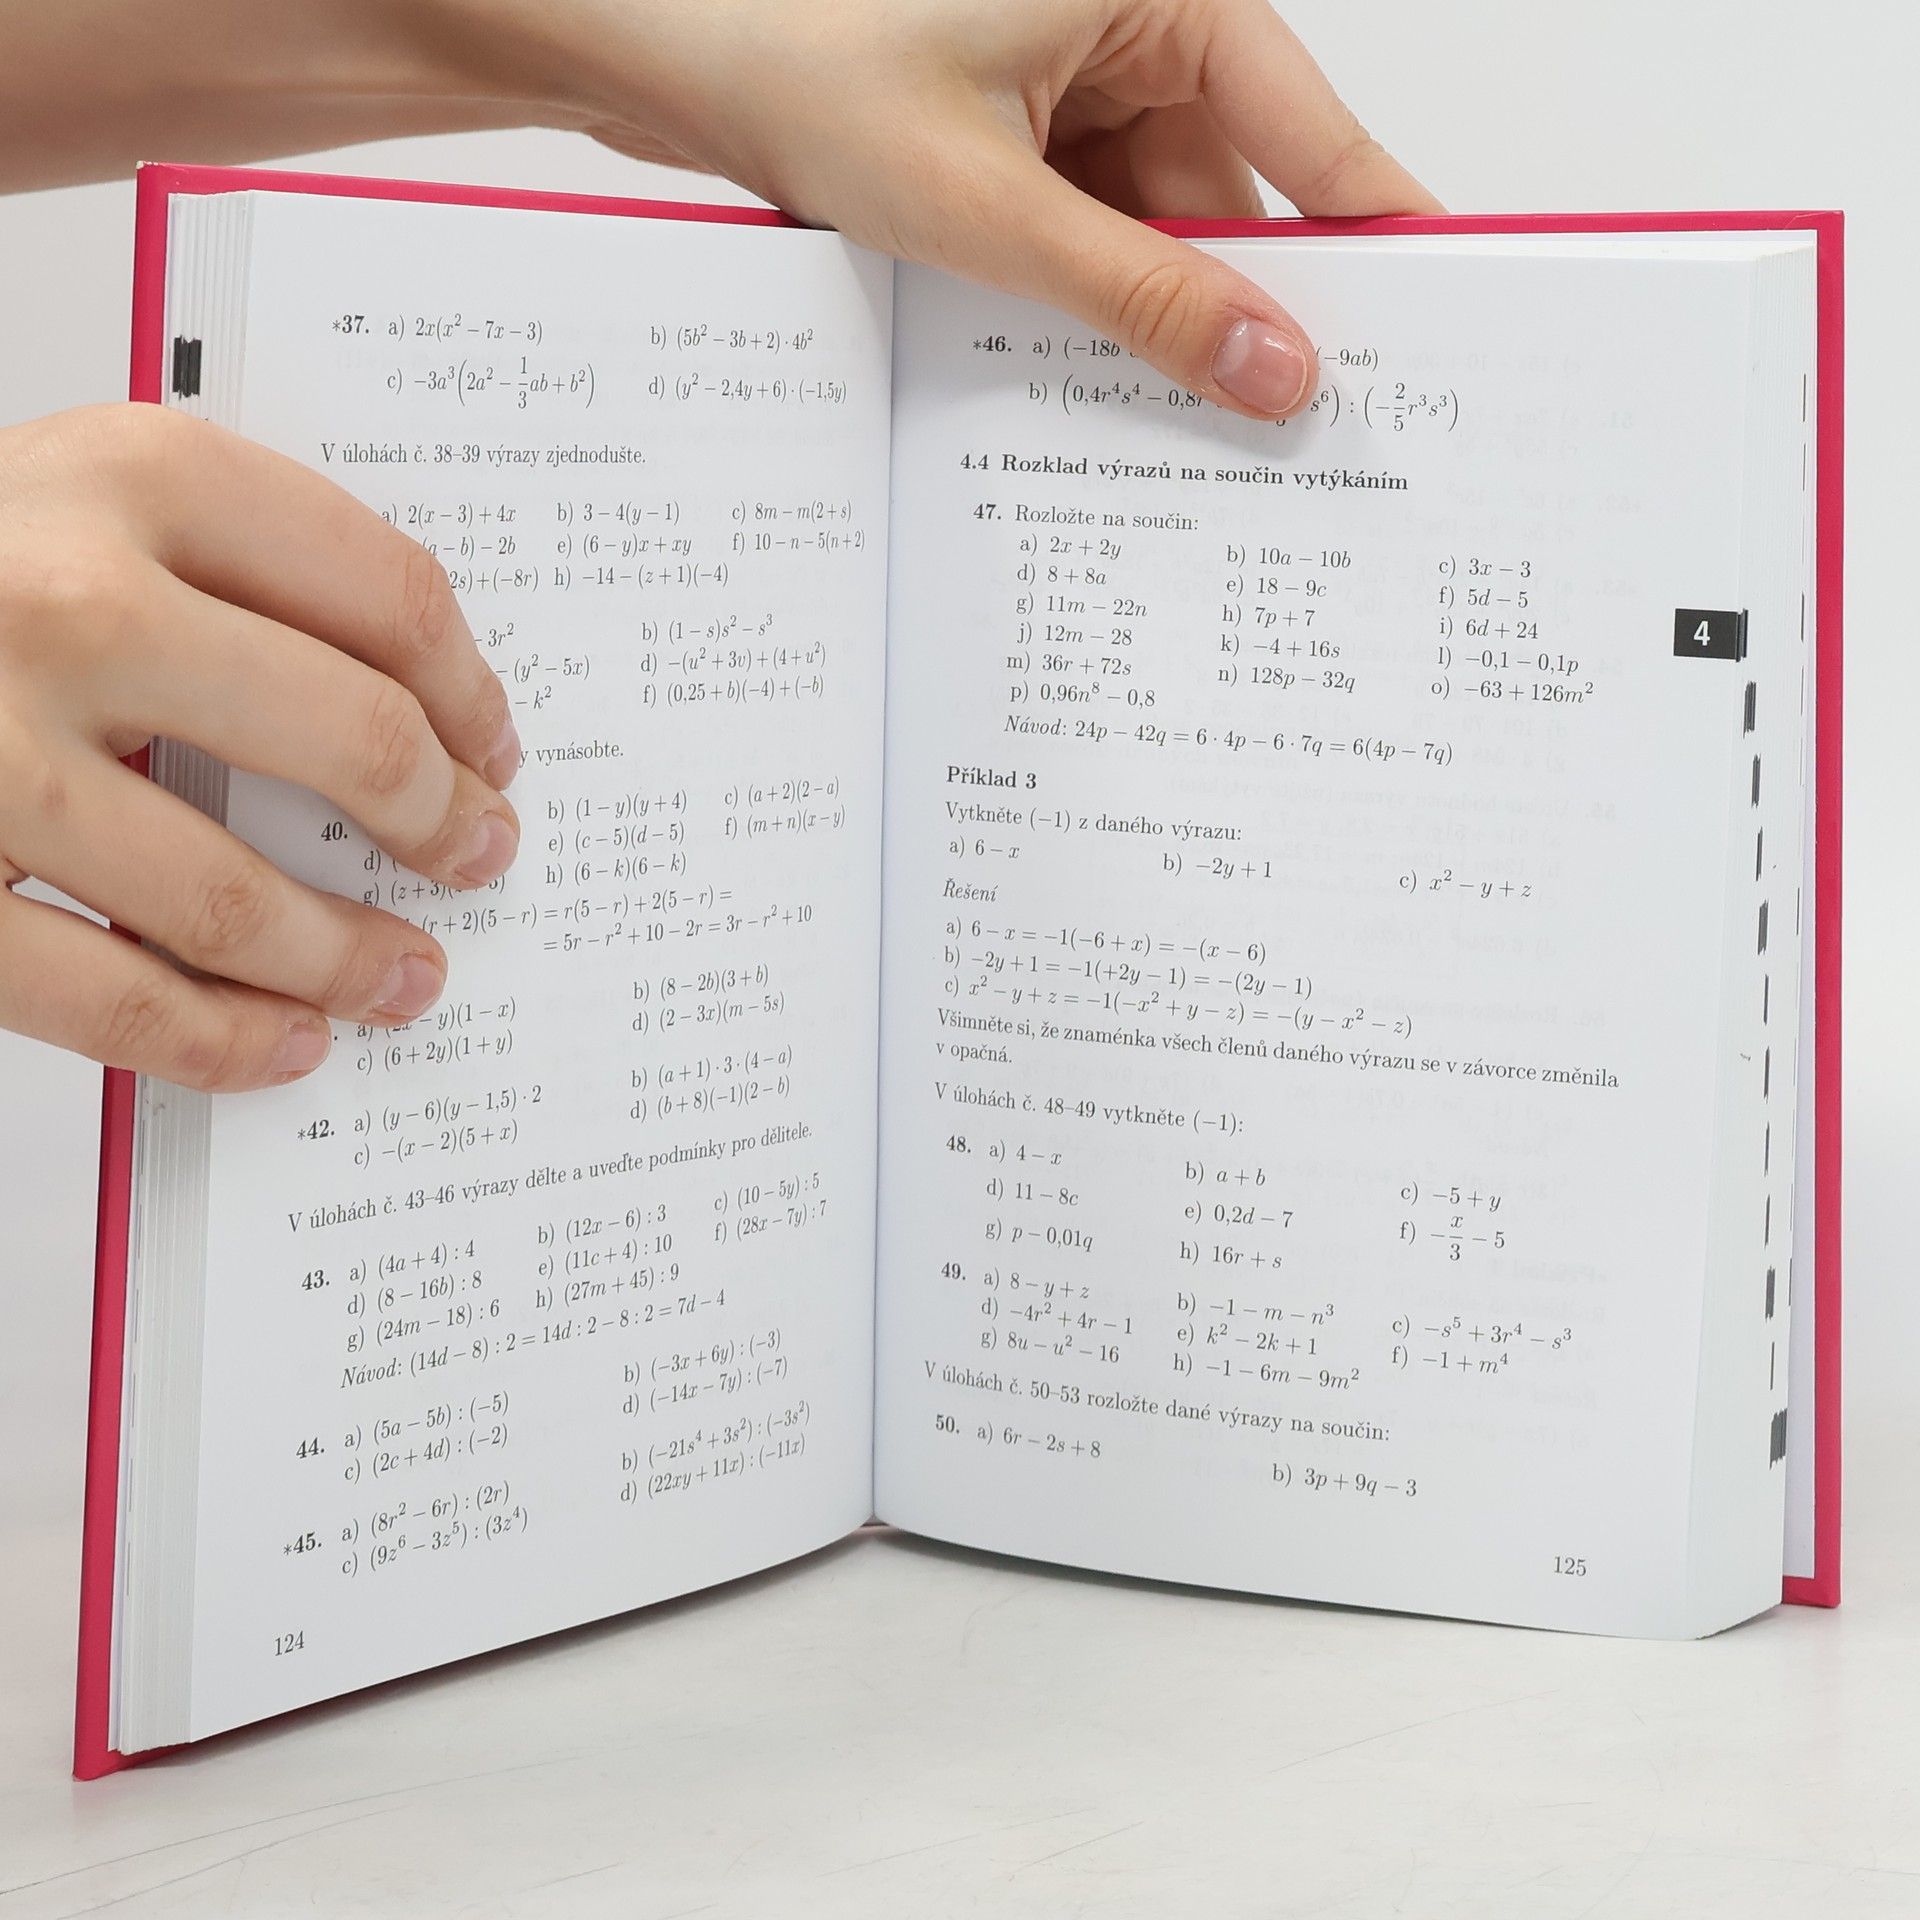 *37. a) 2x(x² − 7x − 3) b) (5b² − 3b + 2) · 4b²
c) −3a³(2a² − 1/3 ab + b²) d) (y² − 2,4y + 6) · (−1,5y)
V úlohách č. 38–39 výrazy zjednodušte.
a) 2(x − 3) + 4x b) 3 − 4(y − 1) c) 8m − m(2 + s)
(a − b) − 2b e) (6 − y)x + xy f) 10 − n − 5(n + 2)
2s) + (−8r) h) −14 − (z + 1)(−4)
− 3r² b) (1 − s)s² − s³
− (y² − 5x) d) −(u² + 3v) + (4 + u²)
− k² f) (0,25 + b)(−4) + (−b)
vynásobte.
40. b) (1 − y)(y + 4) c) (a + 2)(2 − a)
d) ( e) (c − 5)(d − 5) f) (m + n)(x − y)
g) (z + 3)( h) (6 − k)(6 − k)
(r + 2)(5 − r) = r(5 − r) + 2(5 − r) =
= 5r − r² + 10 − 2r = 3r − r² + 10
a) (2x − y)(1 − x) b) (8 − 2b)(3 + b)
c) (6 + 2y)(1 + y) d) (2 − 3x)(m − 5s)
*42. a) (y − 6)(y − 1,5) · 2 b) (a + 1) · 3 · (4 − a)
c) −(x − 2)(5 + x) d) (b + 8)(−1)(2 − b)
V úlohách č. 43–46 výrazy dělte a uveďte podmínky pro dělitele.
43. a) (4a + 4) : 4 b) (12x − 6) : 3 c) (10 − 5y) : 5
d) (8 − 16b) : 8 e) (11c + 4) : 10 f) (28x − 7y) : 7
g) (24m − 18) : 6 h) (27m + 45) : 9
Návod: (14d − 8) : 2 = 14d : 2 − 8 : 2 = 7d − 4
44. a) (5a − 5b) : (−5) b) (−3x + 6y) : (−3)
c) (2c + 4d) : (−2) d) (−14x − 7y) : (−7)
*45. a) (8r² − 6r) : (2r) b) (−21s⁴ + 3s²) : (−3s²)
c) (9z⁶ − 3z⁵) : (3z⁴) d) (22xy + 11x) : (−11x)
124
*46. a) (−18b (−9ab)
b) (0,4r⁴s⁴ − 0,8r s⁶) : (−2/5 r³s³)
4.4 Rozklad výrazů na součin vytýkáním
47. Rozložte na součin:
a) 2x + 2y b) 10a − 10b c) 3x − 3
d) 8 + 8a e) 18 − 9c f) 5d − 5
g) 11m − 22n h) 7p + 7 i) 6d + 24
j) 12m − 28 k) −4 + 16s l) −0,1 − 0,1p
m) 36r + 72s n) 128p − 32q o) −63 + 126m²
p) 0,96n⁸ − 0,8
Návod: 24p − 42q = 6 · 4p − 6 · 7q = 6(4p − 7q)
Příklad 3
Vytkněte (−1) z daného výrazu:
a) 6 − x b) −2y + 1 c) x² − y + z
Řešení
a) 6 − x = −1(−6 + x) = −(x − 6)
b) −2y + 1 = −1(+2y − 1) = −(2y − 1)
c) x² − y + z = −1(−x² + y − z) = −(y − x² − z)
Všimněte si, že znaménka všech členů daného výrazu se v závorce změnila
v opačná.
V úlohách č. 48–49 vytkněte (−1):
48. a) 4 − x b) a + b c) −5 + y
d) 11 − 8c e) 0,2d − 7 f) −x/3 − 5
g) p − 0,01q h) 16r + s
49. a) 8 − y + z b) −1 − m − n³ c) −s⁵ + 3r⁴ − s³
d) −4r² + 4r − 1 e) k² − 2k + 1 f) −1 + m⁴
g) 8u − u² − 16 h) −1 − 6m − 9m²
V úlohách č. 50–53 rozložte dané výrazy na součin:
50. a) 6r − 2s + 8 b) 3p + 9q − 3
125
4